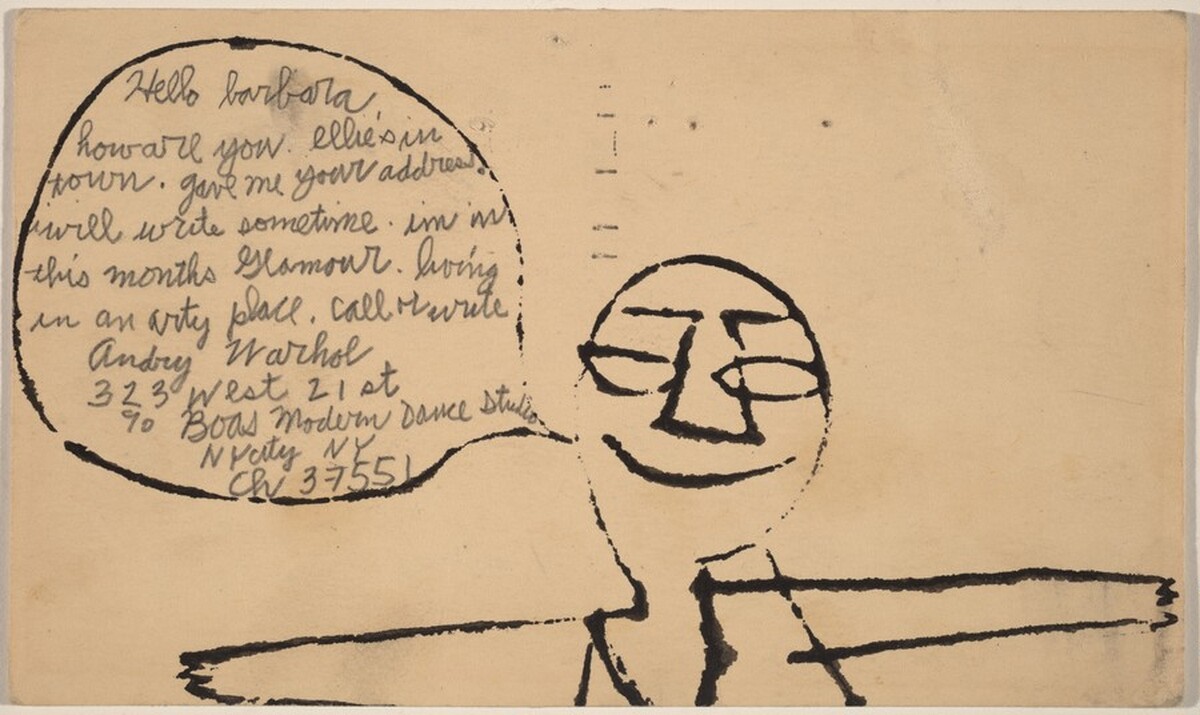 Hello barbara,
how are you. ellie's in
town. gave me your address.
i will write sometime. im in
this months Glamour. living
in an arty place. call or write
Andry Warhol
323 West 21 st
c/o Boas Modern Dance Studio
NY city NY
Ch 37551